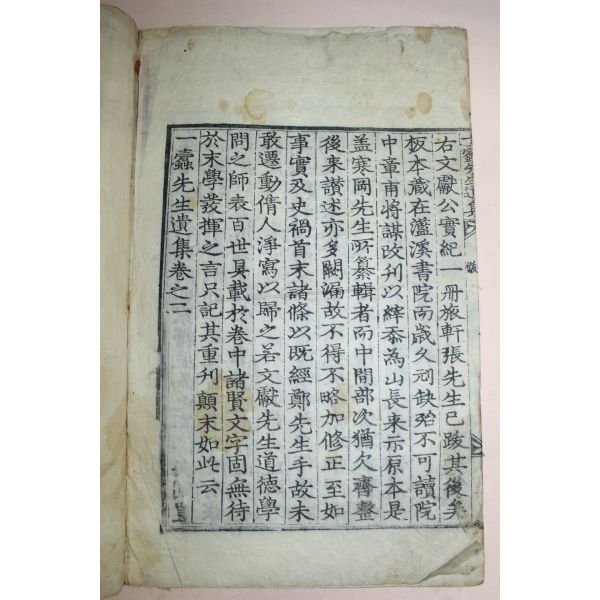 右文獻公實紀一冊旅軒張先生已跋其後矣
板本藏在灆溪書院而歲久刓缺殆不可讀院
中章甫將謀改刊以縡忝為山長来示原本是
盖寒岡先生所纂輯者而中間部次猶欠齊整
後来讃述亦多闕漏故不得不略加修正至如
事實及史禍首末諸條以既經鄭先生手故未
敢遷動倩人淨寫以歸之若文獻先生道德學
問之師表百世具載扵卷中諸賢文字固無待
於末學發揮之言只記其重刋顚末如此云
一蠹先生遺集卷之二